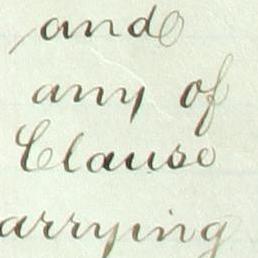 and
any of
Clause
arrying